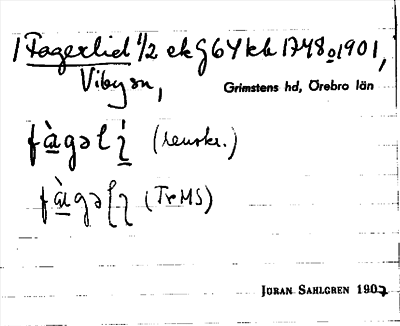 1 Fagerlid 1/2 ek G 64 kb 1748 o 1901,
Vibysn,
Grimstens hd, Örebro län
(renskr.)
(TrMS)
JÖRAN SAHLGREN 1907